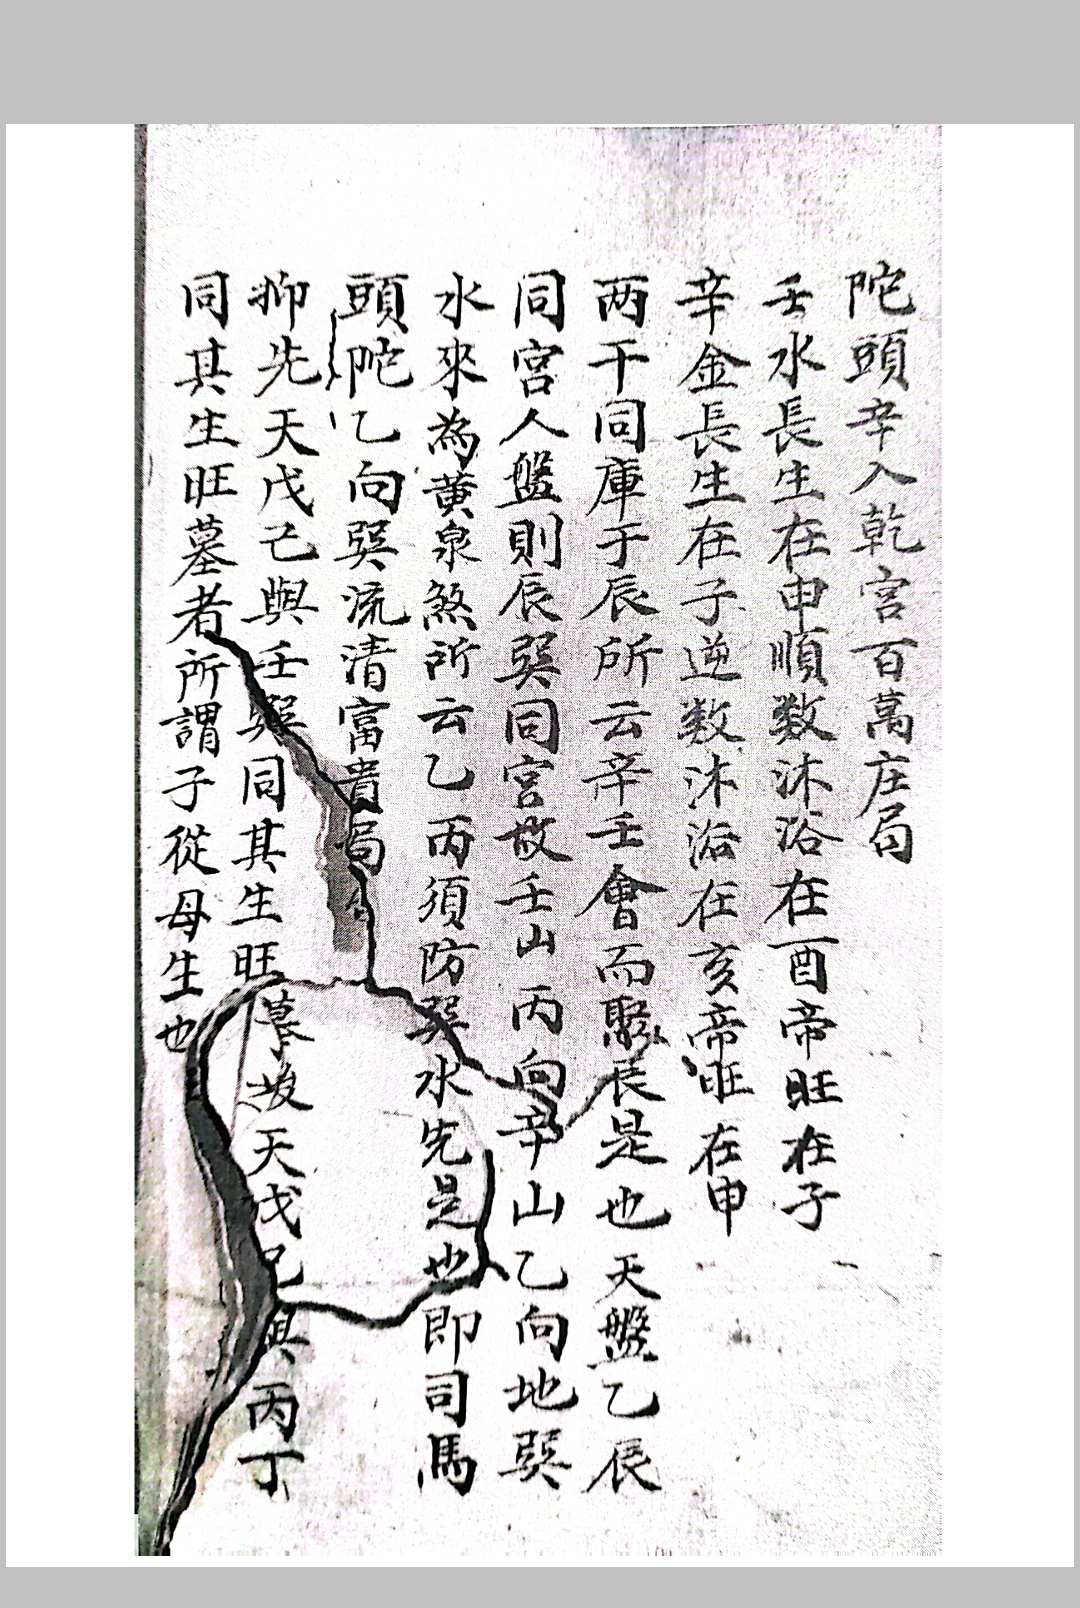 陀頭辛入乾宮百萬庄局
壬水長生在申順数沐浴在酉帝旺在子
辛金長生在子逆数沐浴在亥帝旺在申
两干同庫于辰所云辛壬會而聚辰是也天盤乙辰
同宮人盤則辰巽同宮故壬山丙向辛山乙向地巽
水來為黄泉煞所云乙丙須防巽水先是也即司馬
頭陀乙向巽流清富貴局
抑先天戊己與壬癸同其生旺墓故天戊己與丙丁
同其生旺墓者所謂子從母生也